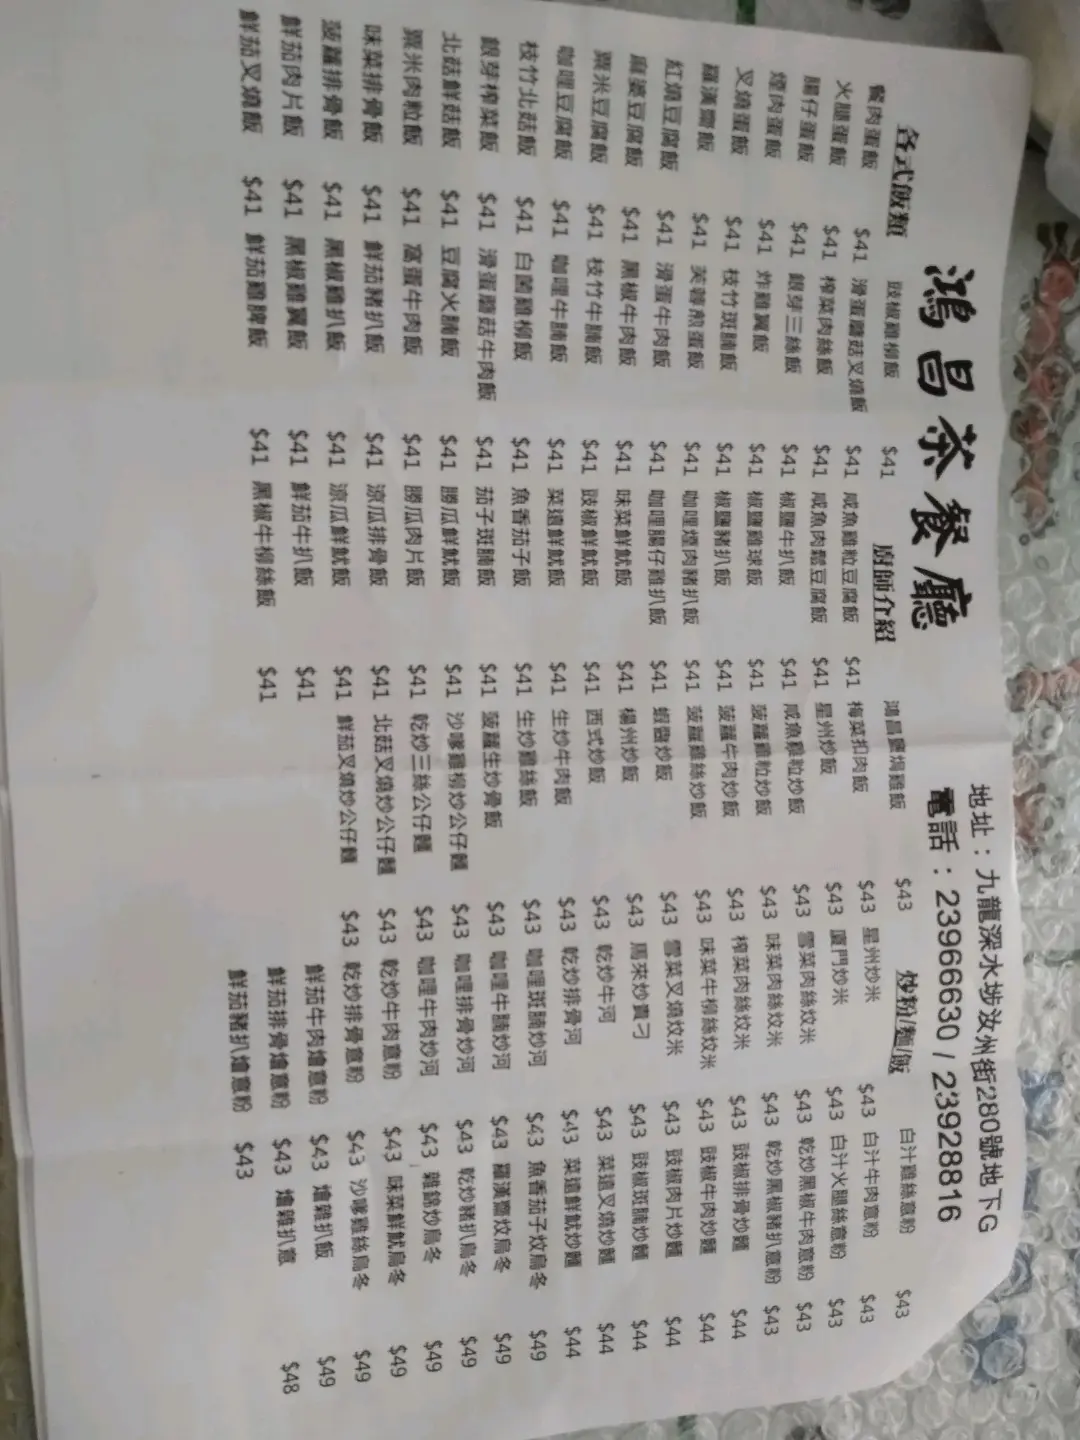 鴻昌茶餐廳
地址：九龍深水埗汝州街280號地下G
電話：23966630 / 23928816
各式飯類 豉椒雞柳飯 $41 廚師介紹 鴻昌鹽焗雞飯 $43 炒粉/麵/飯 白汁雞絲意粉 $43
餐肉蛋飯 $41 滑蛋蘑菇叉燒飯 $41 咸魚雞粒豆腐飯 $41 梅菜扣肉飯 $43 星州炒米 $43 白汁牛肉意粉 $43
火腿蛋飯 $41 榨菜肉絲飯 $41 咸魚肉鬆豆腐飯 $41 星州炒飯 $43 廈門炒米 $43 白汁火腿絲意粉 $43
腸仔蛋飯 $41 銀芽三絲飯 $41 椒鹽牛扒飯 $41 咸魚雞粒炒飯 $43 雪菜肉絲炆米 $43 乾炒黑椒牛肉意粉 $43
煙肉蛋飯 $41 炸雞翼飯 $41 椒鹽雞球飯 $41 菠蘿雞粒炒飯 $43 味菜肉絲炆米 $43 乾炒黑椒豬扒意粉 $43
叉燒蛋飯 $41 枝竹斑腩飯 $41 椒鹽豬扒飯 $41 菠蘿牛肉炒飯 $43 榨菜肉絲炆米 $43 豉椒排骨炒麵 $44
羅漢齋飯 $41 芙蓉煎蛋飯 $41 咖哩煙肉豬扒飯 $41 菠蘿雞絲炒飯 $43 味菜牛柳絲炆米 $43 豉椒牛肉炒麵 $44
紅燒豆腐飯 $41 滑蛋牛肉飯 $41 咖哩腸仔雞扒飯 $41 炒飯 $43 雪菜叉燒炆米 $43 豉椒肉片炒麵 $44
麻婆豆腐飯 $41 黑椒牛肉飯 $41 味菜鮮魷飯 $41 楊州炒飯 $43 馬來炒貴刁 $43 豉椒斑腩炒麵 $44
粟米豆腐飯 $41 枝竹牛腩飯 $41 豉椒鮮魷飯 $41 西式炒飯 $43 乾炒牛河 $43 菜遠叉燒炒麵 $44
咖哩豆腐飯 $41 咖哩牛腩飯 $41 菜遠鮮魷飯 $41 生炒牛肉飯 $43 乾炒排骨河 $43 菜遠鮮魷炒麵 $44
枝竹北菇飯 $41 白菌雞柳飯 $41 魚香茄子飯 $41 生炒雞絲飯 $43 咖哩斑腩炒河 $43 魚香茄子炆烏冬 $49
銀芽榨菜飯 $41 滑蛋蘑菇牛肉飯 $41 茄子斑腩飯 $41 菠蘿生炒骨飯 $43 咖哩牛腩炒河 $43 羅漢齋炆烏冬 $49
北菇鮮菇飯 $41 豆腐火腩飯 $41 勝瓜鮮魷飯 $41 沙嗲雞柳炒公仔麵 $43 咖哩排骨炒河 $43 乾炒豬扒烏冬 $49
粟米肉粒飯 $41 窩蛋牛肉飯 $41 勝瓜肉片飯 $41 乾炒三絲公仔麵 $43 咖哩牛肉炒河 $43 雜錦炒烏冬 $49
味菜排骨飯 $41 鮮茄豬扒飯 $41 涼瓜排骨飯 $41 北菇叉燒炒公仔麵 $43 乾炒牛肉意粉 $43 味菜鮮魷烏冬 $49
菠蘿排骨飯 $41 黑椒雞扒飯 $41 涼瓜鮮魷飯 $41 鮮茄叉燒炒公仔麵 $43 乾炒排骨意粉 $43 沙嗲雞絲烏冬 $49
鮮茄肉片飯 $41 黑椒雞翼飯 $41 鮮茄牛扒飯 $41 鮮茄牛肉燴意粉 $43 燴雜扒飯 $49
鮮茄叉燒飯 $41 鮮茄雞脾飯 $41 黑椒牛柳絲飯 $41 鮮茄排骨燴意粉 $43 燴雜扒意 $48
鮮茄豬扒燴意粉 $43